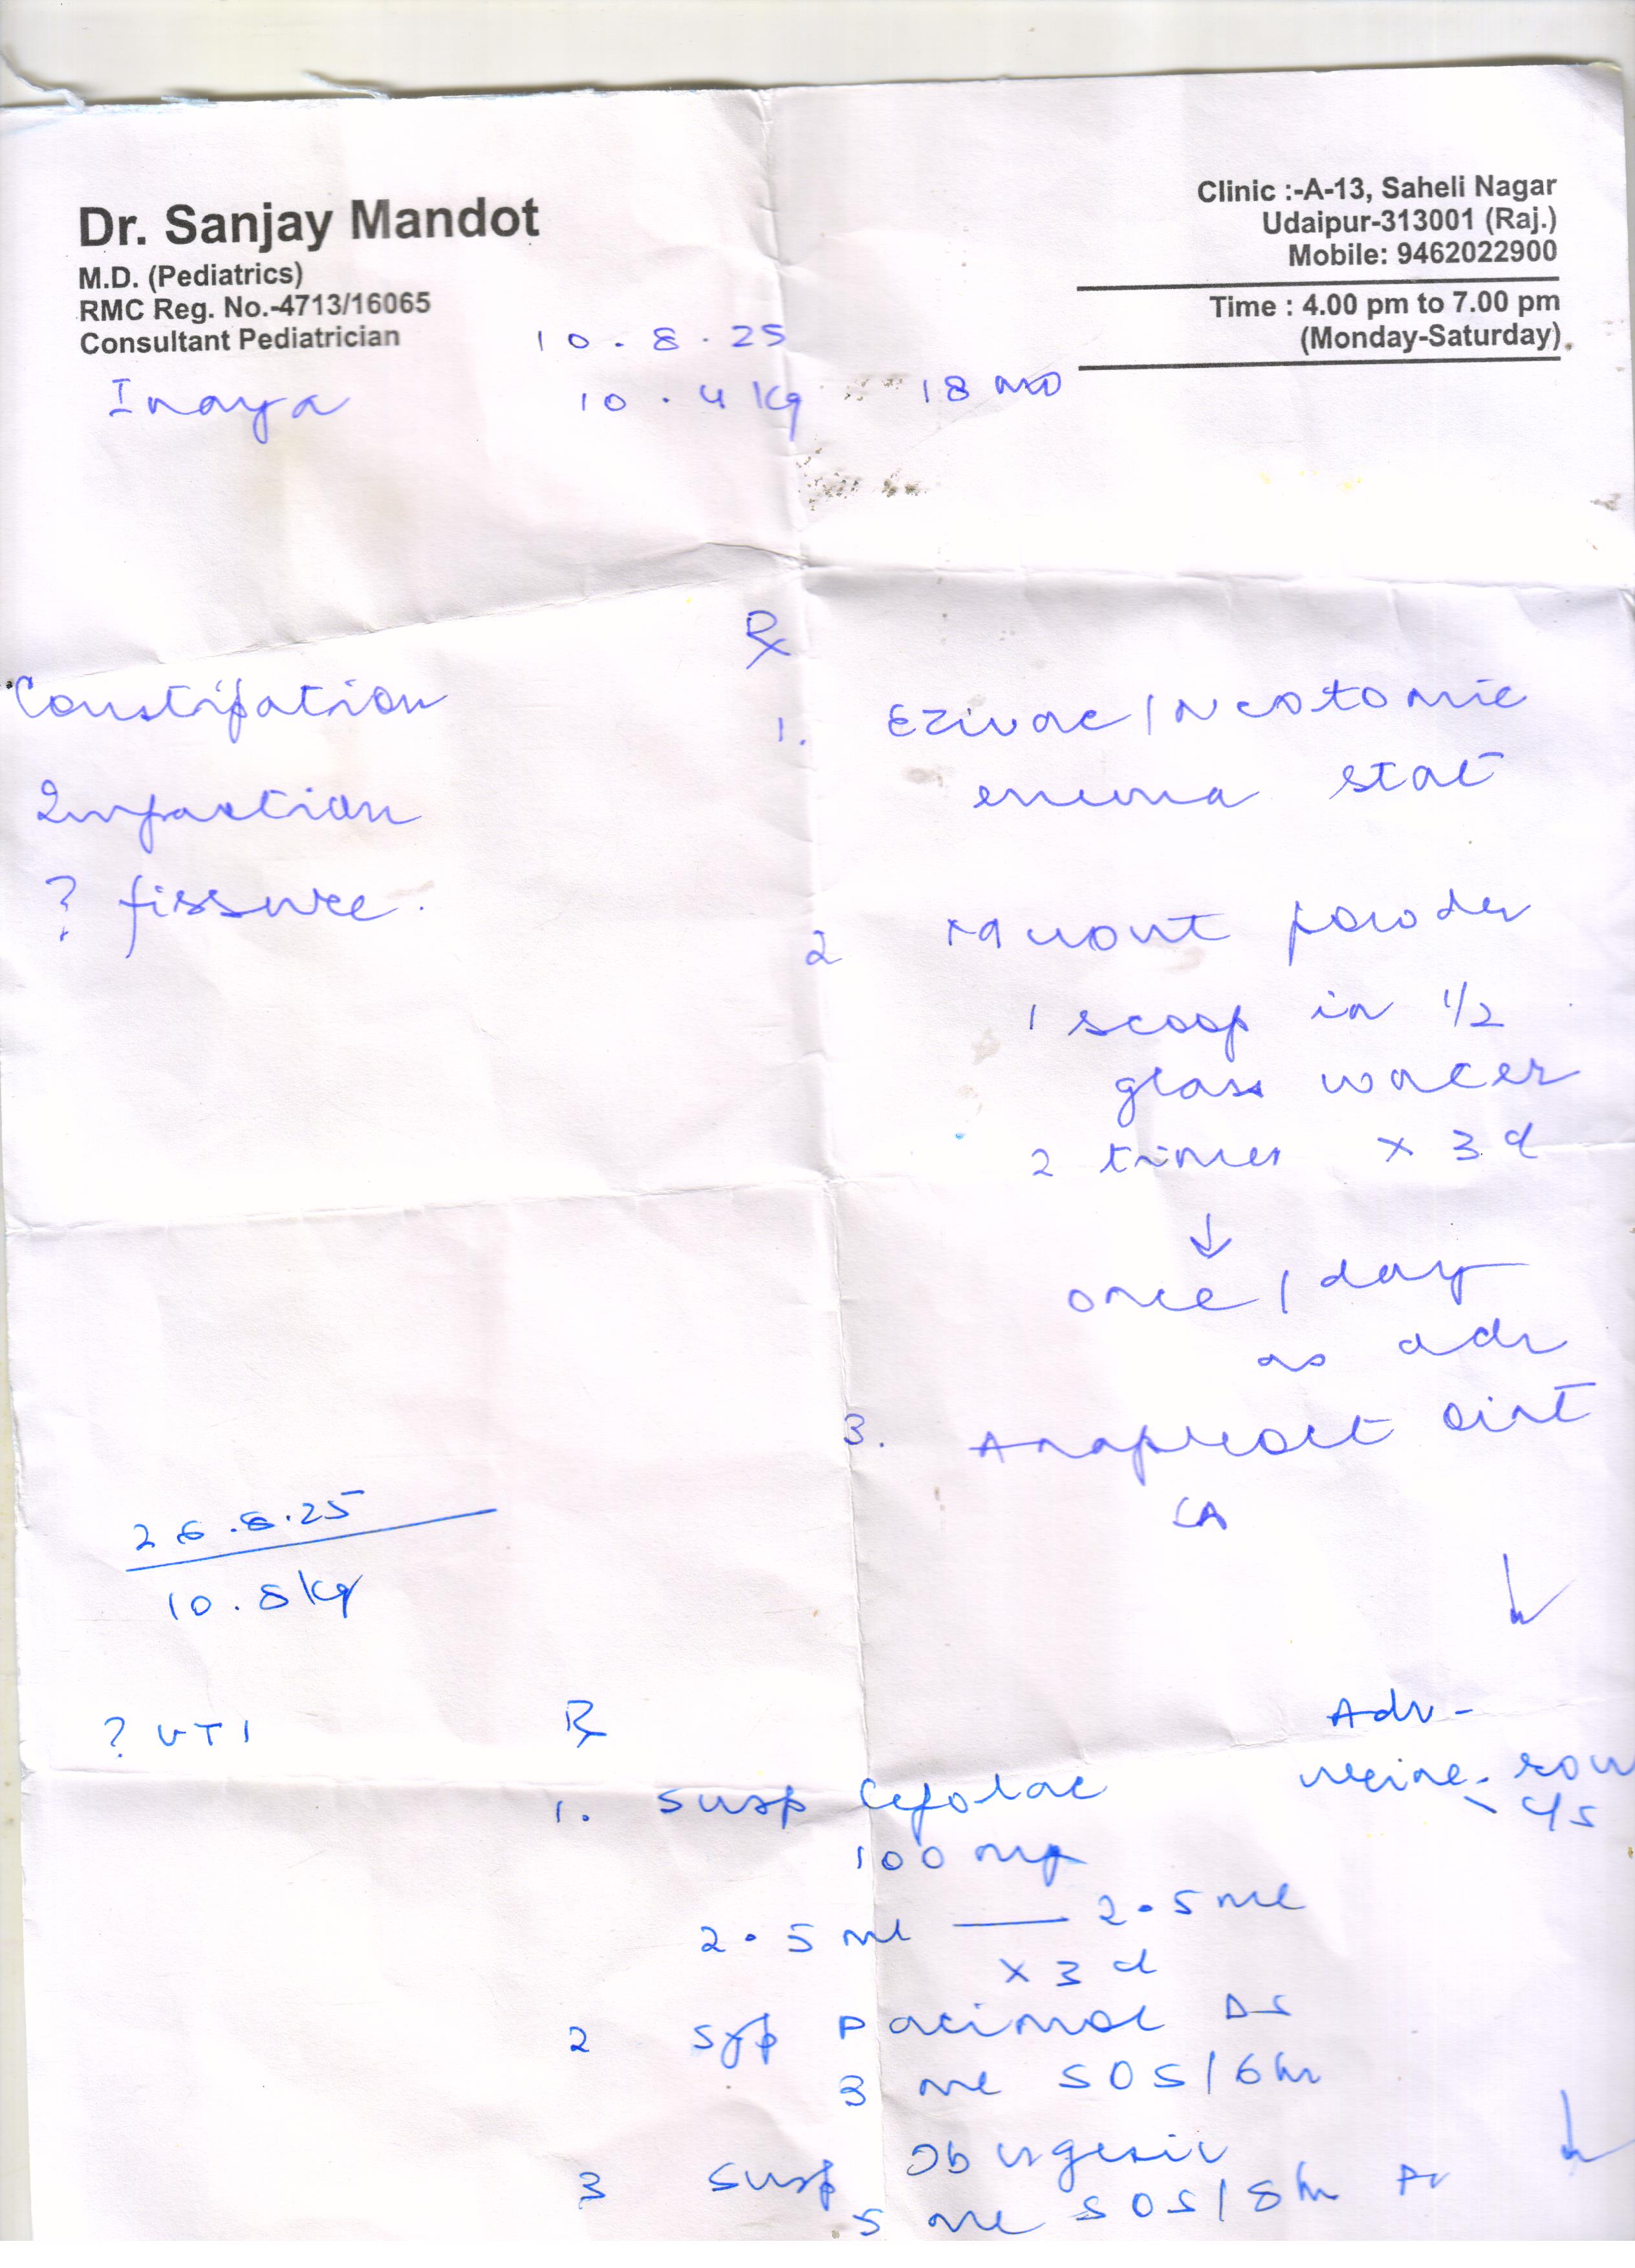 Dr. Sanjay Mandot
M.D. (Pediatrics)
RMC Reg. No.-4713/16065
Consultant Pediatrician
Clinic :-A-13, Saheli Nagar
Udaipur-313001 (Raj.)
Mobile: 9462022900
Time : 4.00 pm to 7.00 pm
(Monday-Saturday)
10.8.25
Inaya 10.4 kg 18 mo
Constipation
Impaction
? fissure.
Rx
1. / Neotonic
enema stat
2 powder
1 scoop in 1/2
glass water
2 times x 3 d
↓
once / day
as adv
3. oint
LA
26.8.25
10.8 kg
? UTI
Rx
1. Susp Cefolac
100 mg
2.5 ml — 2.5 ml
x 3 d
2 Syp Pacimol DS
3 ml SOS/6hr
3 Susp Ibugesic
5 ml SOS/8hr
Adv -
urine - rou
- c/s